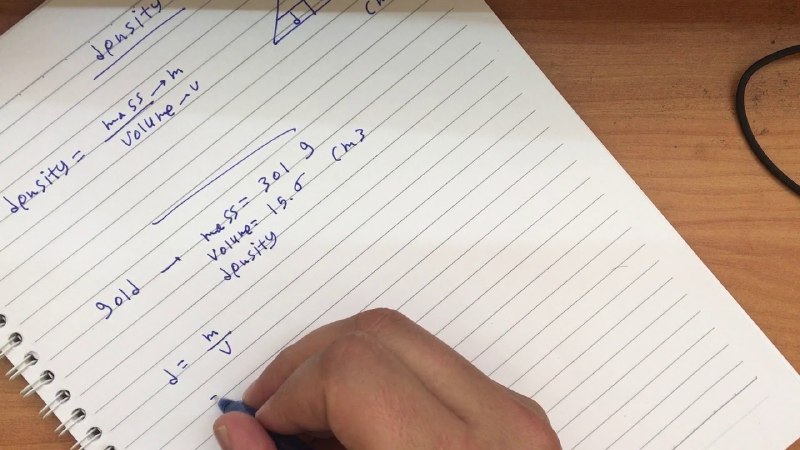 density
d
density = mass → m
volume - v
gold → mass = 301 g
volume = 15.6 cm3
density
d = m
v
=